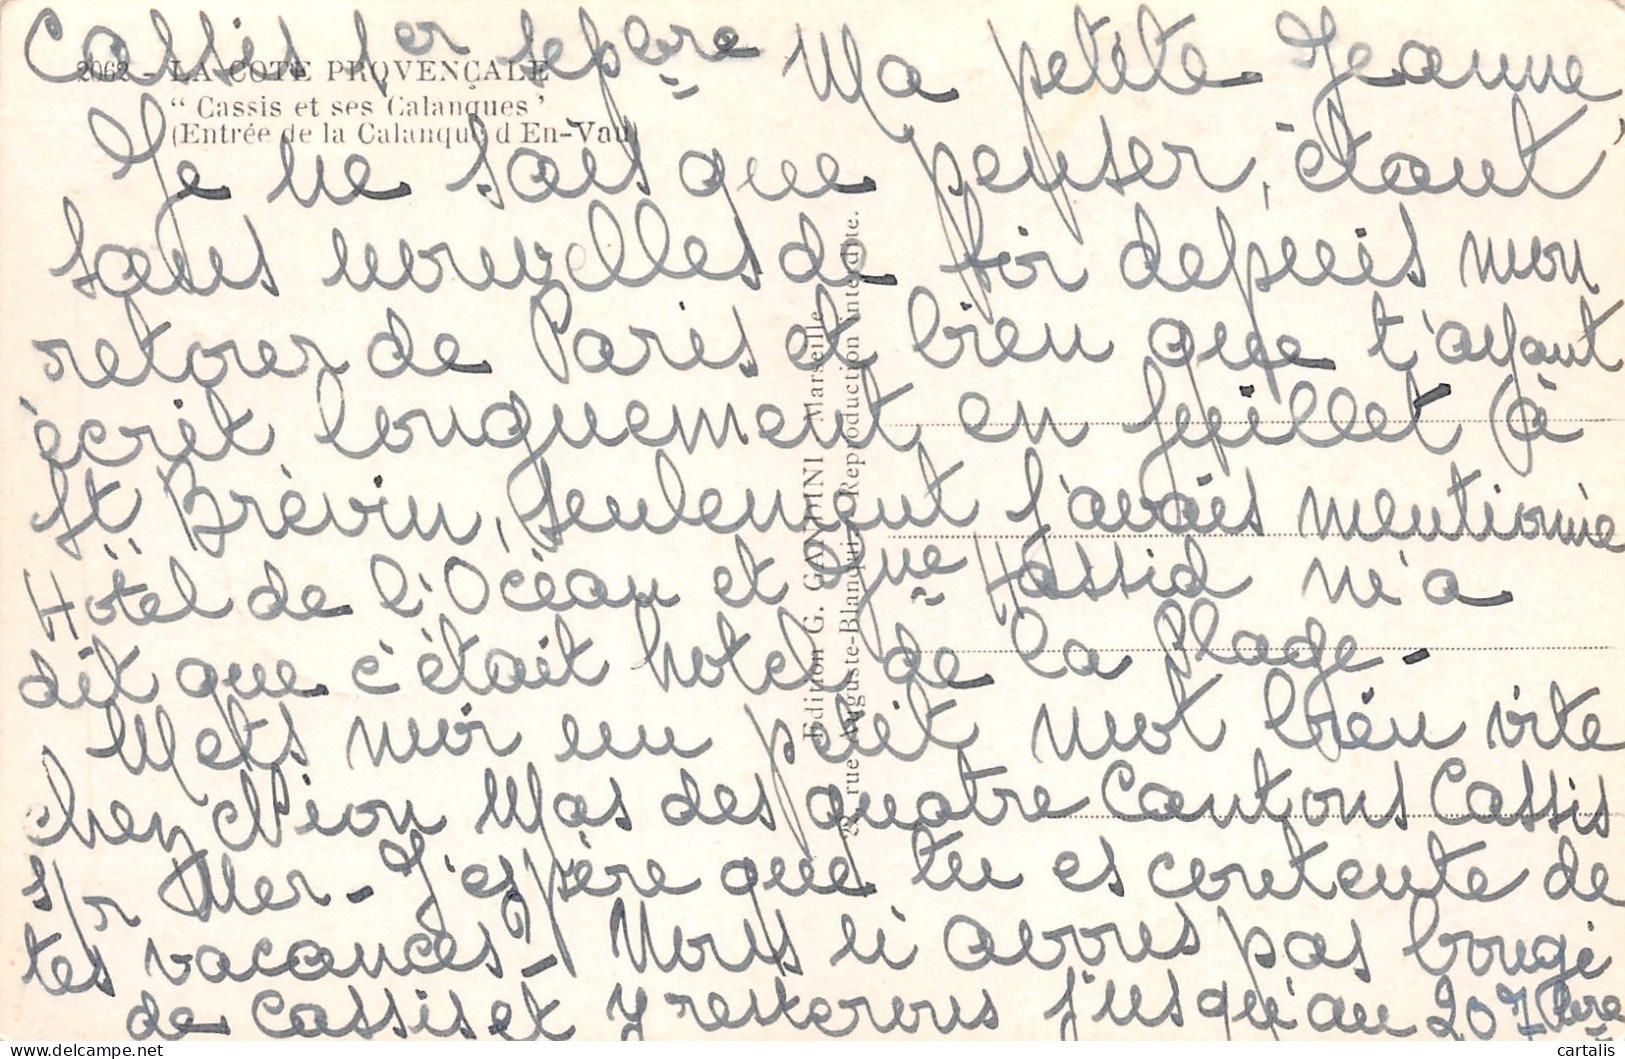 Cassis 1er sepbre Ma petite Jeanne,
2062 - LA COTE PROVENÇALE
“ Cassis et ses Calanques ”
(Entrée de la Calanque d'En-Vau)
Je ne sais que penser, étant
sans nouvelles de toi depuis mon
retour de Paris et bien que t'ayant
écrit longuement en juillet (à
St Brévin, seulement j'avais mentionné
Hôtel de l'Océan et Mme Hassid m'a
dit que c'était hôtel de la Plage -
Mets moi un petit mot bien vite
chez Mas des quatre Cantons Cassis
s/r Mer - J'espère que tu es contente de
tes vacances - Nous n'avons pas bougé
de Cassis et y resterons jusqu'au 20 7bre
Edition G. GANDINI Marseille
rue Auguste-Blanqui. Reproduction interdite.
cartalis